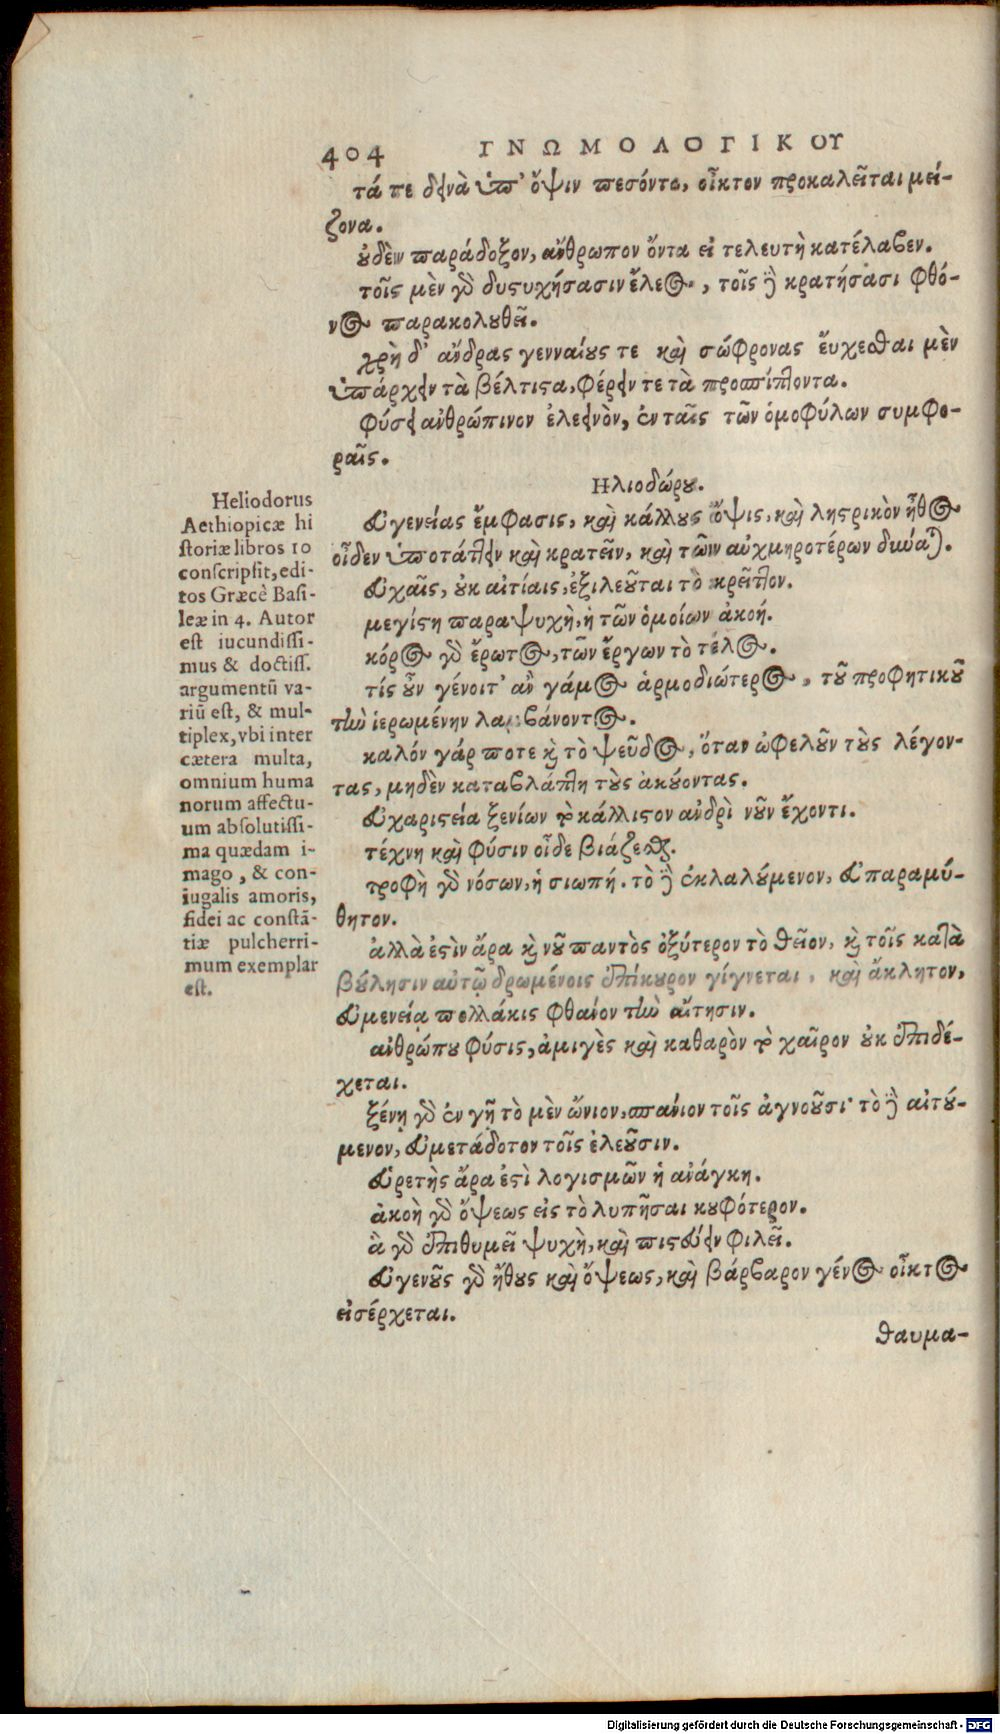 404 ΓΝΩΜΟΛΟΓΙΚΟΥ
τά τε δεινὰ ὑπ' ὄψιν πεσόντα, οἶκτον προκαλεῖται μεί-
ζονα.
οὐδὲν παράδοξον, ἄνθρωπον ὄντα εἰ τελευτὴ κατέλαβεν.
τοῖς μὲν γὰρ δυστυχήσασιν ἔλεος, τοῖς δὲ κρατήσασι φθό-
νος παρακολουθεῖ.
χρὴ δ' ἄνδρας γενναίους τε καὶ σώφρονας εὔχεσθαι μὲν
ὑπάρχειν τὰ βέλτιστα, φέρειν τε τὰ προσπίπτοντα.
φύσει ἀνθρώπινον ἐλεεινὸν, ἐν ταῖς τῶν ὁμοφύλων συμφο-
ραῖς.
Ηλιοδώρου.
εὐγενείας ἔμφασις, καὶ κάλλους ὄψις, καὶ λῃστρικὸν ἦθος
οἶδεν ὑποτάττειν καὶ κρατεῖν, καὶ τῶν αὐχμηροτέρων δύναται.
εὐχαῖς, οὐκ αἰτίαις, ἐξιλεοῦται τὸ κρεῖττον.
μεγίστη παραψυχὴ, ἡ τῶν ὁμοίων ἀκοή.
κόρος γὰρ ἔρωτος, τῶν ἔργων τὸ τέλος.
τίς οὖν γένοιτ' ἂν γάμος ἁρμοδιώτερος, τοῦ προφητικοῦ
τὴν ἱερωμένην λαμβάνοντος.
καλόν γάρ ποτε καὶ τὸ ψεῦδος, ὅταν ὠφελοῦν τοὺς λέγον-
τας, μηδὲν καταβλάπτῃ τοὺς ἀκούοντας.
εὐχαριστεία ξενίων τὸ κάλλιστον ἀνδρὶ νοῦν ἔχοντι.
τέχνη καὶ φύσιν οἶδε βιάζεσθαι.
τροφὴ γὰρ νόσων, ἡ σιωπή. τὸ δὲ ἐκλαλούμενον, εὐπαραμύ-
θητον.
ἀλλὰ ἐστὶν ἄρα καὶ νοῦ παντὸς ὀξύτερον τὸ θεῖον, καὶ τοῖς κατὰ
βούλησιν αὐτῷ δρωμένοις ἐπίκουρον γίγνεται, καὶ ἄκλητον,
εὐμενείᾳ πολλάκις φθάνον τὴν αἴτησιν.
ἀνθρώπου φύσις, ἀμιγὲς καὶ καθαρὸν τὸ χαῖρον οὐκ ἐπιδέ-
χεται.
ξένῃ γὰρ ἐν γῇ τὸ μὲν ὤνιον, σπάνιον τοῖς ἀγνοοῦσι· τὸ δὲ αἰτού-
μενον, εὐμετάδοτον τοῖς ἐλεοῦσιν.
εὑρετὴς ἄρα ἐστὶ λογισμῶν ἡ ἀνάγκη.
ἀκοὴ γὰρ ὄψεως εἰς τὸ λυπῆσαι κουφότερον.
ἃ γὰρ ἐπιθυμεῖ ψυχὴ, καὶ πιστεύειν φιλεῖ.
εὐγενοῦς γὰρ ἤθους καὶ ὄψεως, καὶ βάρβαρον γένος οἶκτος
εἰσέρχεται.
θαυμα-
Heliodorus
Aethiopicæ hi
storiæ libros 10
conscripsit, edi-
tos Græcè Basi-
leæ in 4. Autor
est iucundissi-
mus & doctiss.
argumentū va-
riū est, & mul-
tiplex, vbi inter
cætera multa,
omnium huma
norum affectu-
um absolutissi-
ma quædam i-
mago, & con-
iugalis amoris,
fidei ac constā-
tiæ pulcherri-
mum exemplar
est.
Digitalisierung gefördert durch die Deutsche Forschungsgemeinschaft - DFG